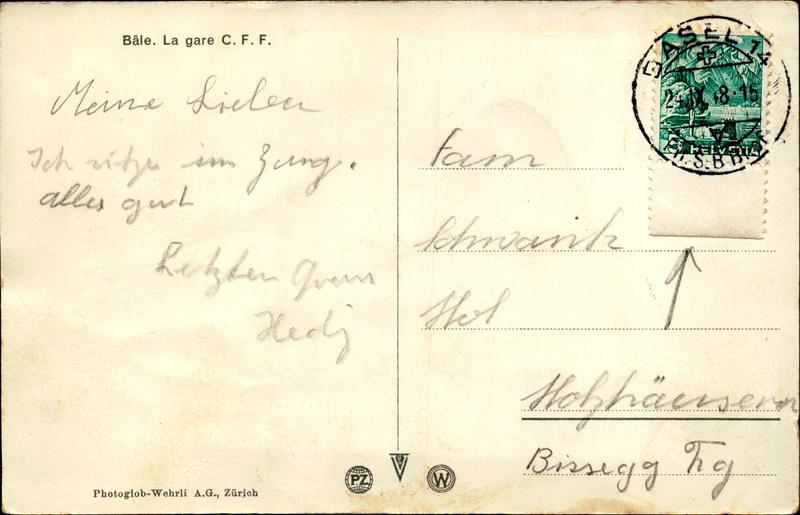 Bâle. La gare C. F. F.
Meine Lieben
Ich sitze im Zug.
alles gut
Letzten Gruss
Hedy
Fam
Schwank
Hol
Holzhäusern
Bissegg Tg
BASEL 14
24.IX. 8-15
HELVETIA
PZ
W
Photoglob-Wehrli A.G., Zürich